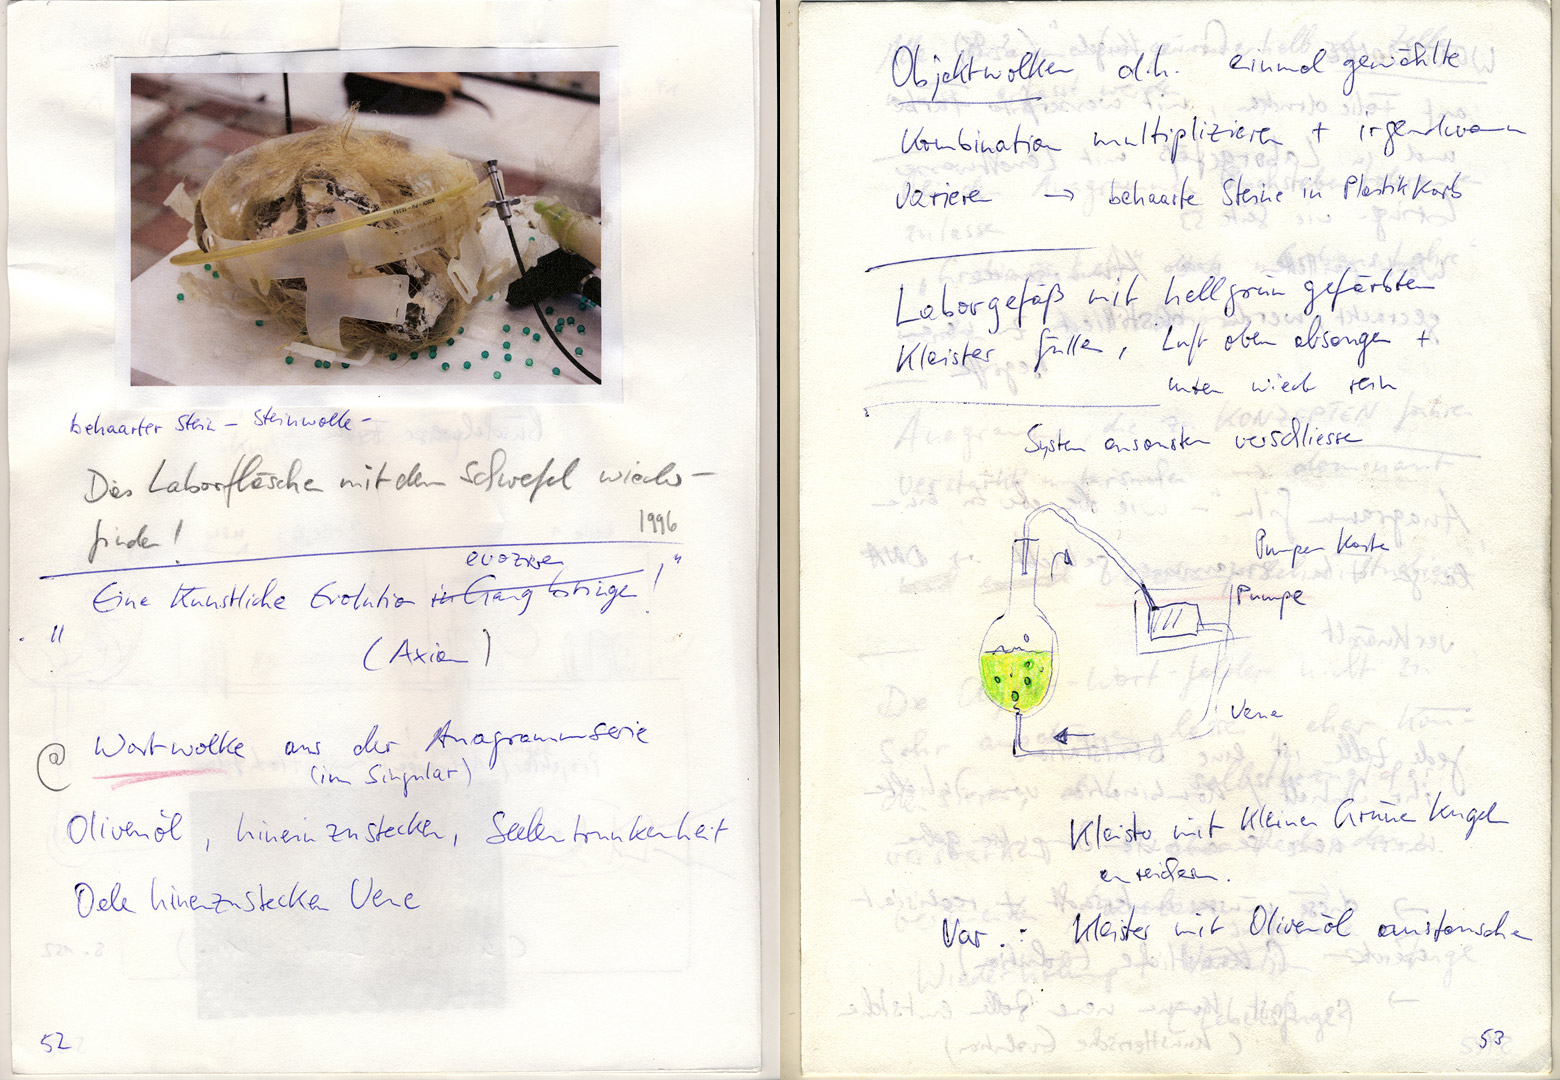 behaarter Stein – Steinwolle –
Das Laborfläschen mit dem Schwefel wieder-
finden!
1996
evozieren
Eine Künstliche Evolution in Gang bringen!"
"
(Axiom)
@ Wortwolke aus der Anagrammserie
(im Singular)
Olivenöl, hineinzustecken, Seelentrunkenheit
Oele hineinzustecken Vene
52
Objektwolken d.h. einmal gewählte
Kombination multiplizieren + irgendwann
variieren → behaarte Steine in Plastikkorb
Laborgefäß mit hellgrün gefärbten
Kleister füllen, Luft oben absaugen +
unten wieder rein
System ansonsten verschliessen
Pumpen Kasten
Pumpe
Vene
Kleister mit kleinen Grünen Kugeln
anreichern.
Var.: Kleister mit Olivenöl austauschen
53